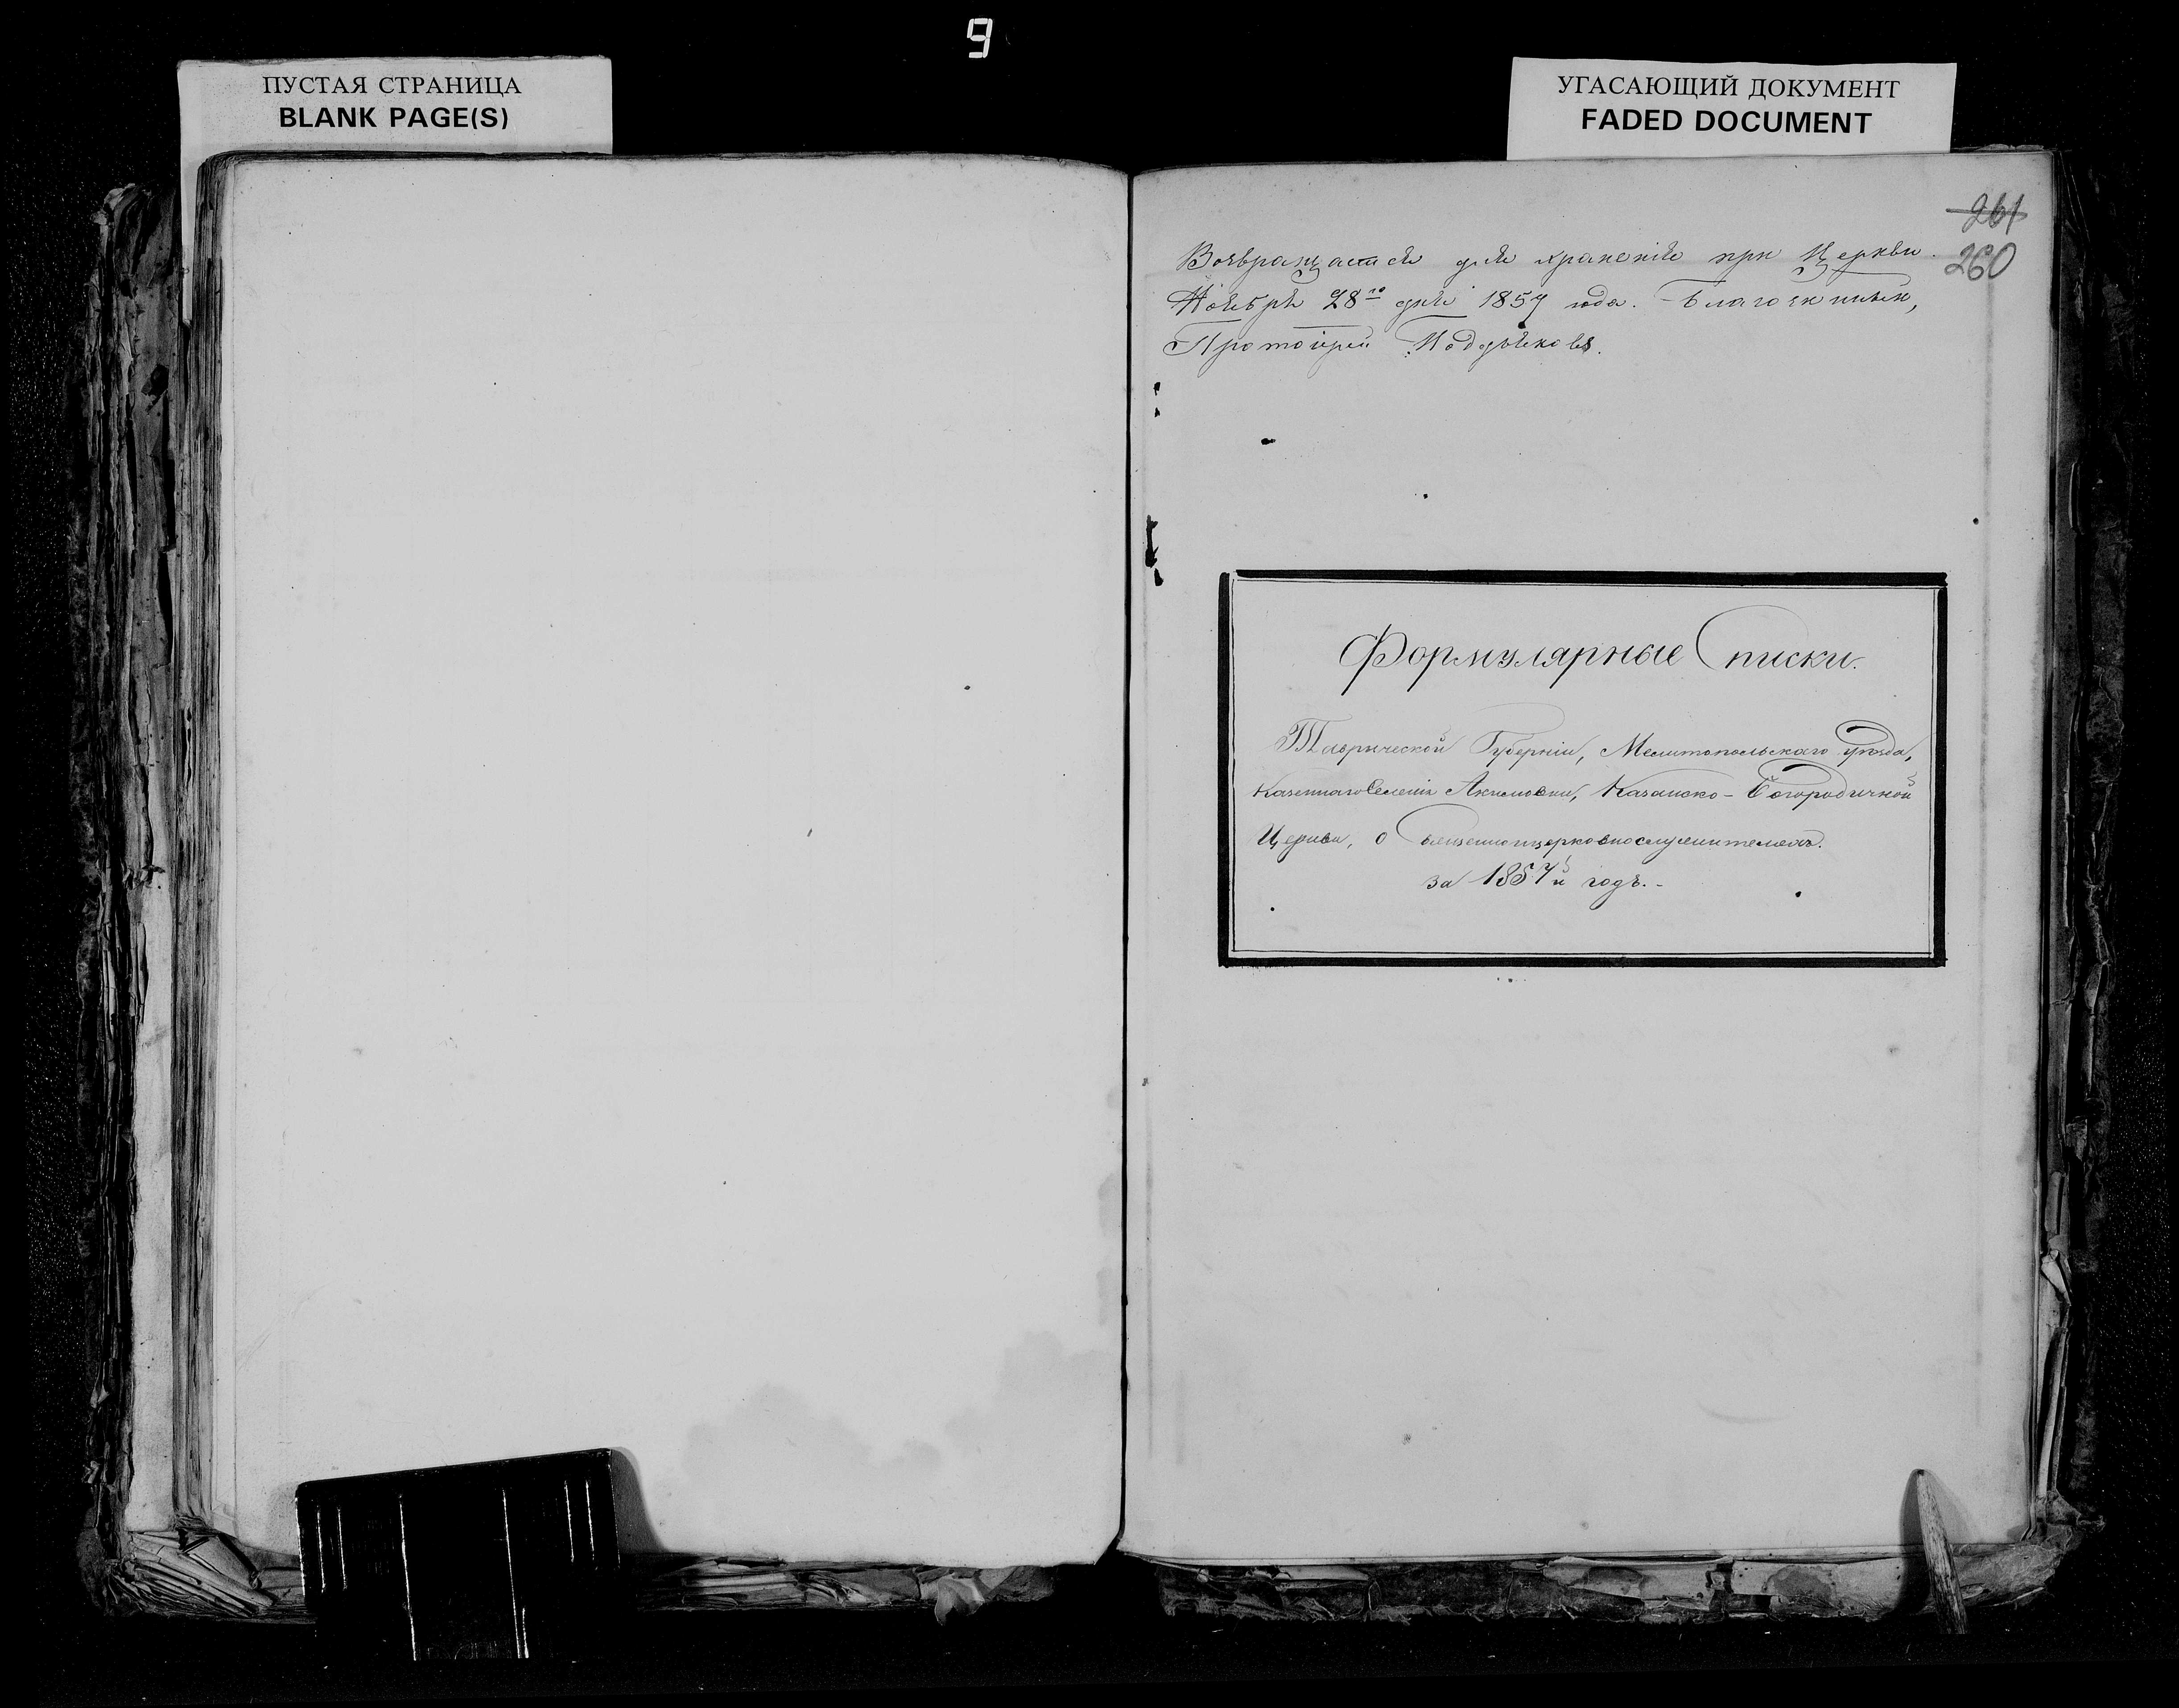 9
ПУСТАЯ СТРАНИЦА
BLANK PAGE(S)
УГАСАЮЩИЙ ДОКУМЕНТ
FADED DOCUMENT
261
260
Возвращается для храненія при Церкви.
Ноября 28го дня 1857 года. Благочинный,
Протоіерей Поддьяковъ.
Формулярные Списки.
Таврической Губерніи, Мелитопольскаго уѣзда,
Казеннаго Селенія Акимовки, Казанско-Богородичной
Церкви, о Священноцерковнослужителяхъ.
за 1857й годъ.-